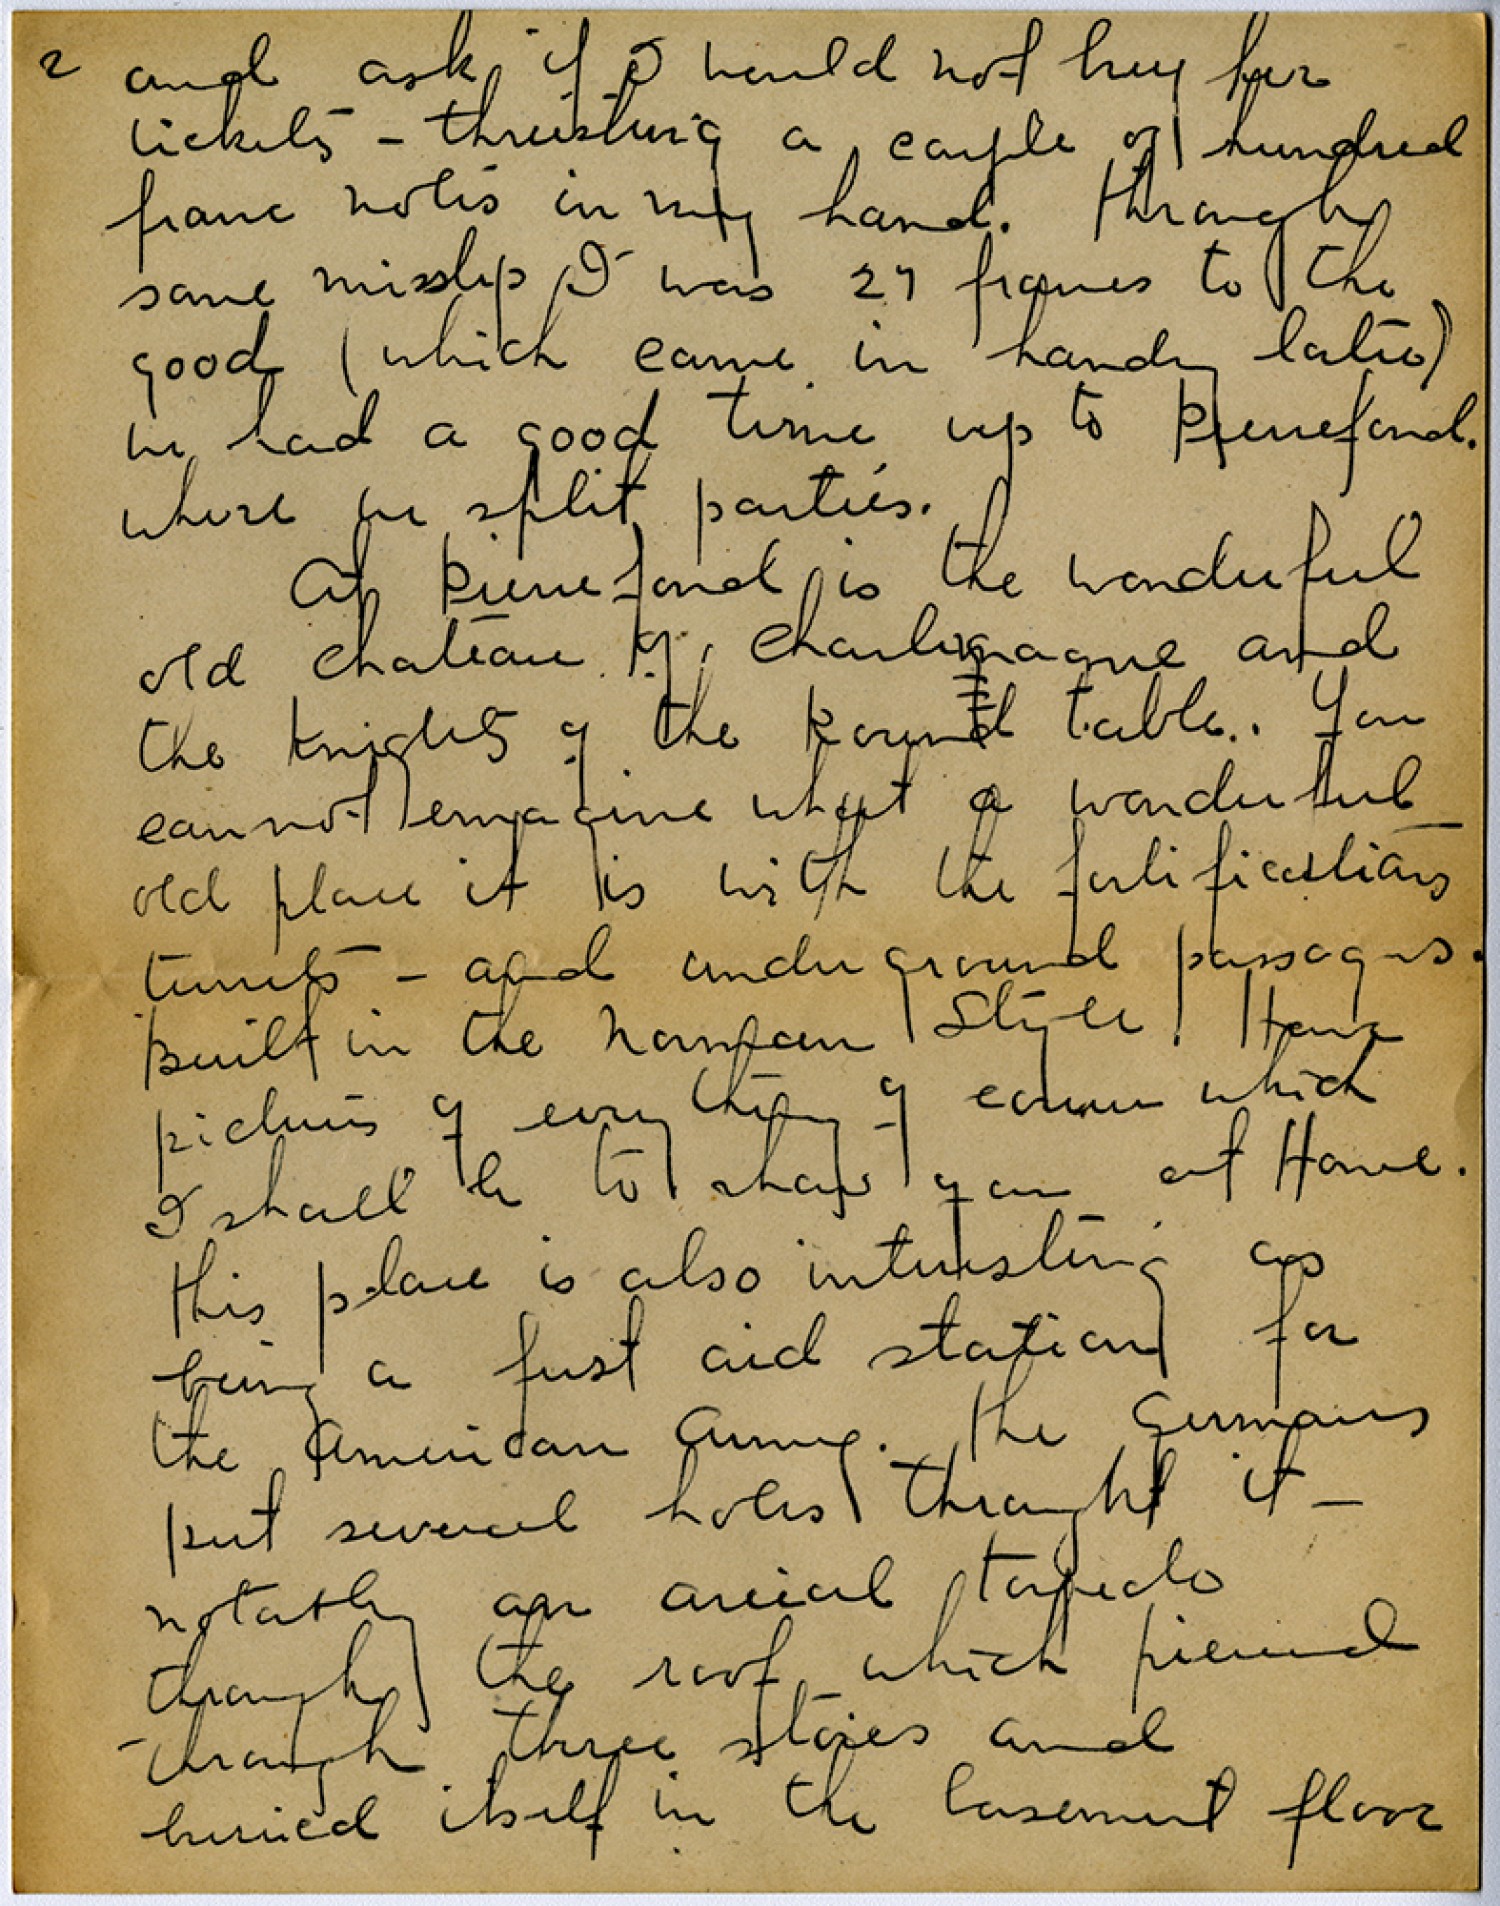 2 and ask if I would not buy her
tickets - thrusting a couple of hundred
franc notes in my hand. Through
some misslip I was 27 francs to the
good (which came in handy later)
we had a good time up to Pierrefond.
where we split parties.
At Pierrefond is the wonderful
old chateau of Charlemagne and
the Knights of the Round table.. You
cannot emagine what a wonderful
old place it is with the fortifications
turrets - and underground passages.
built in the Norman Style. Have
pictures of every thing of course which
I shall be to show you at Home.
This place is also interesting as
being a first aid station for
the American Army. The Germans
put several holes throught it -
notably an areial torpedo
through the roof which pierced
through three stories and
buried itself in the basement floor